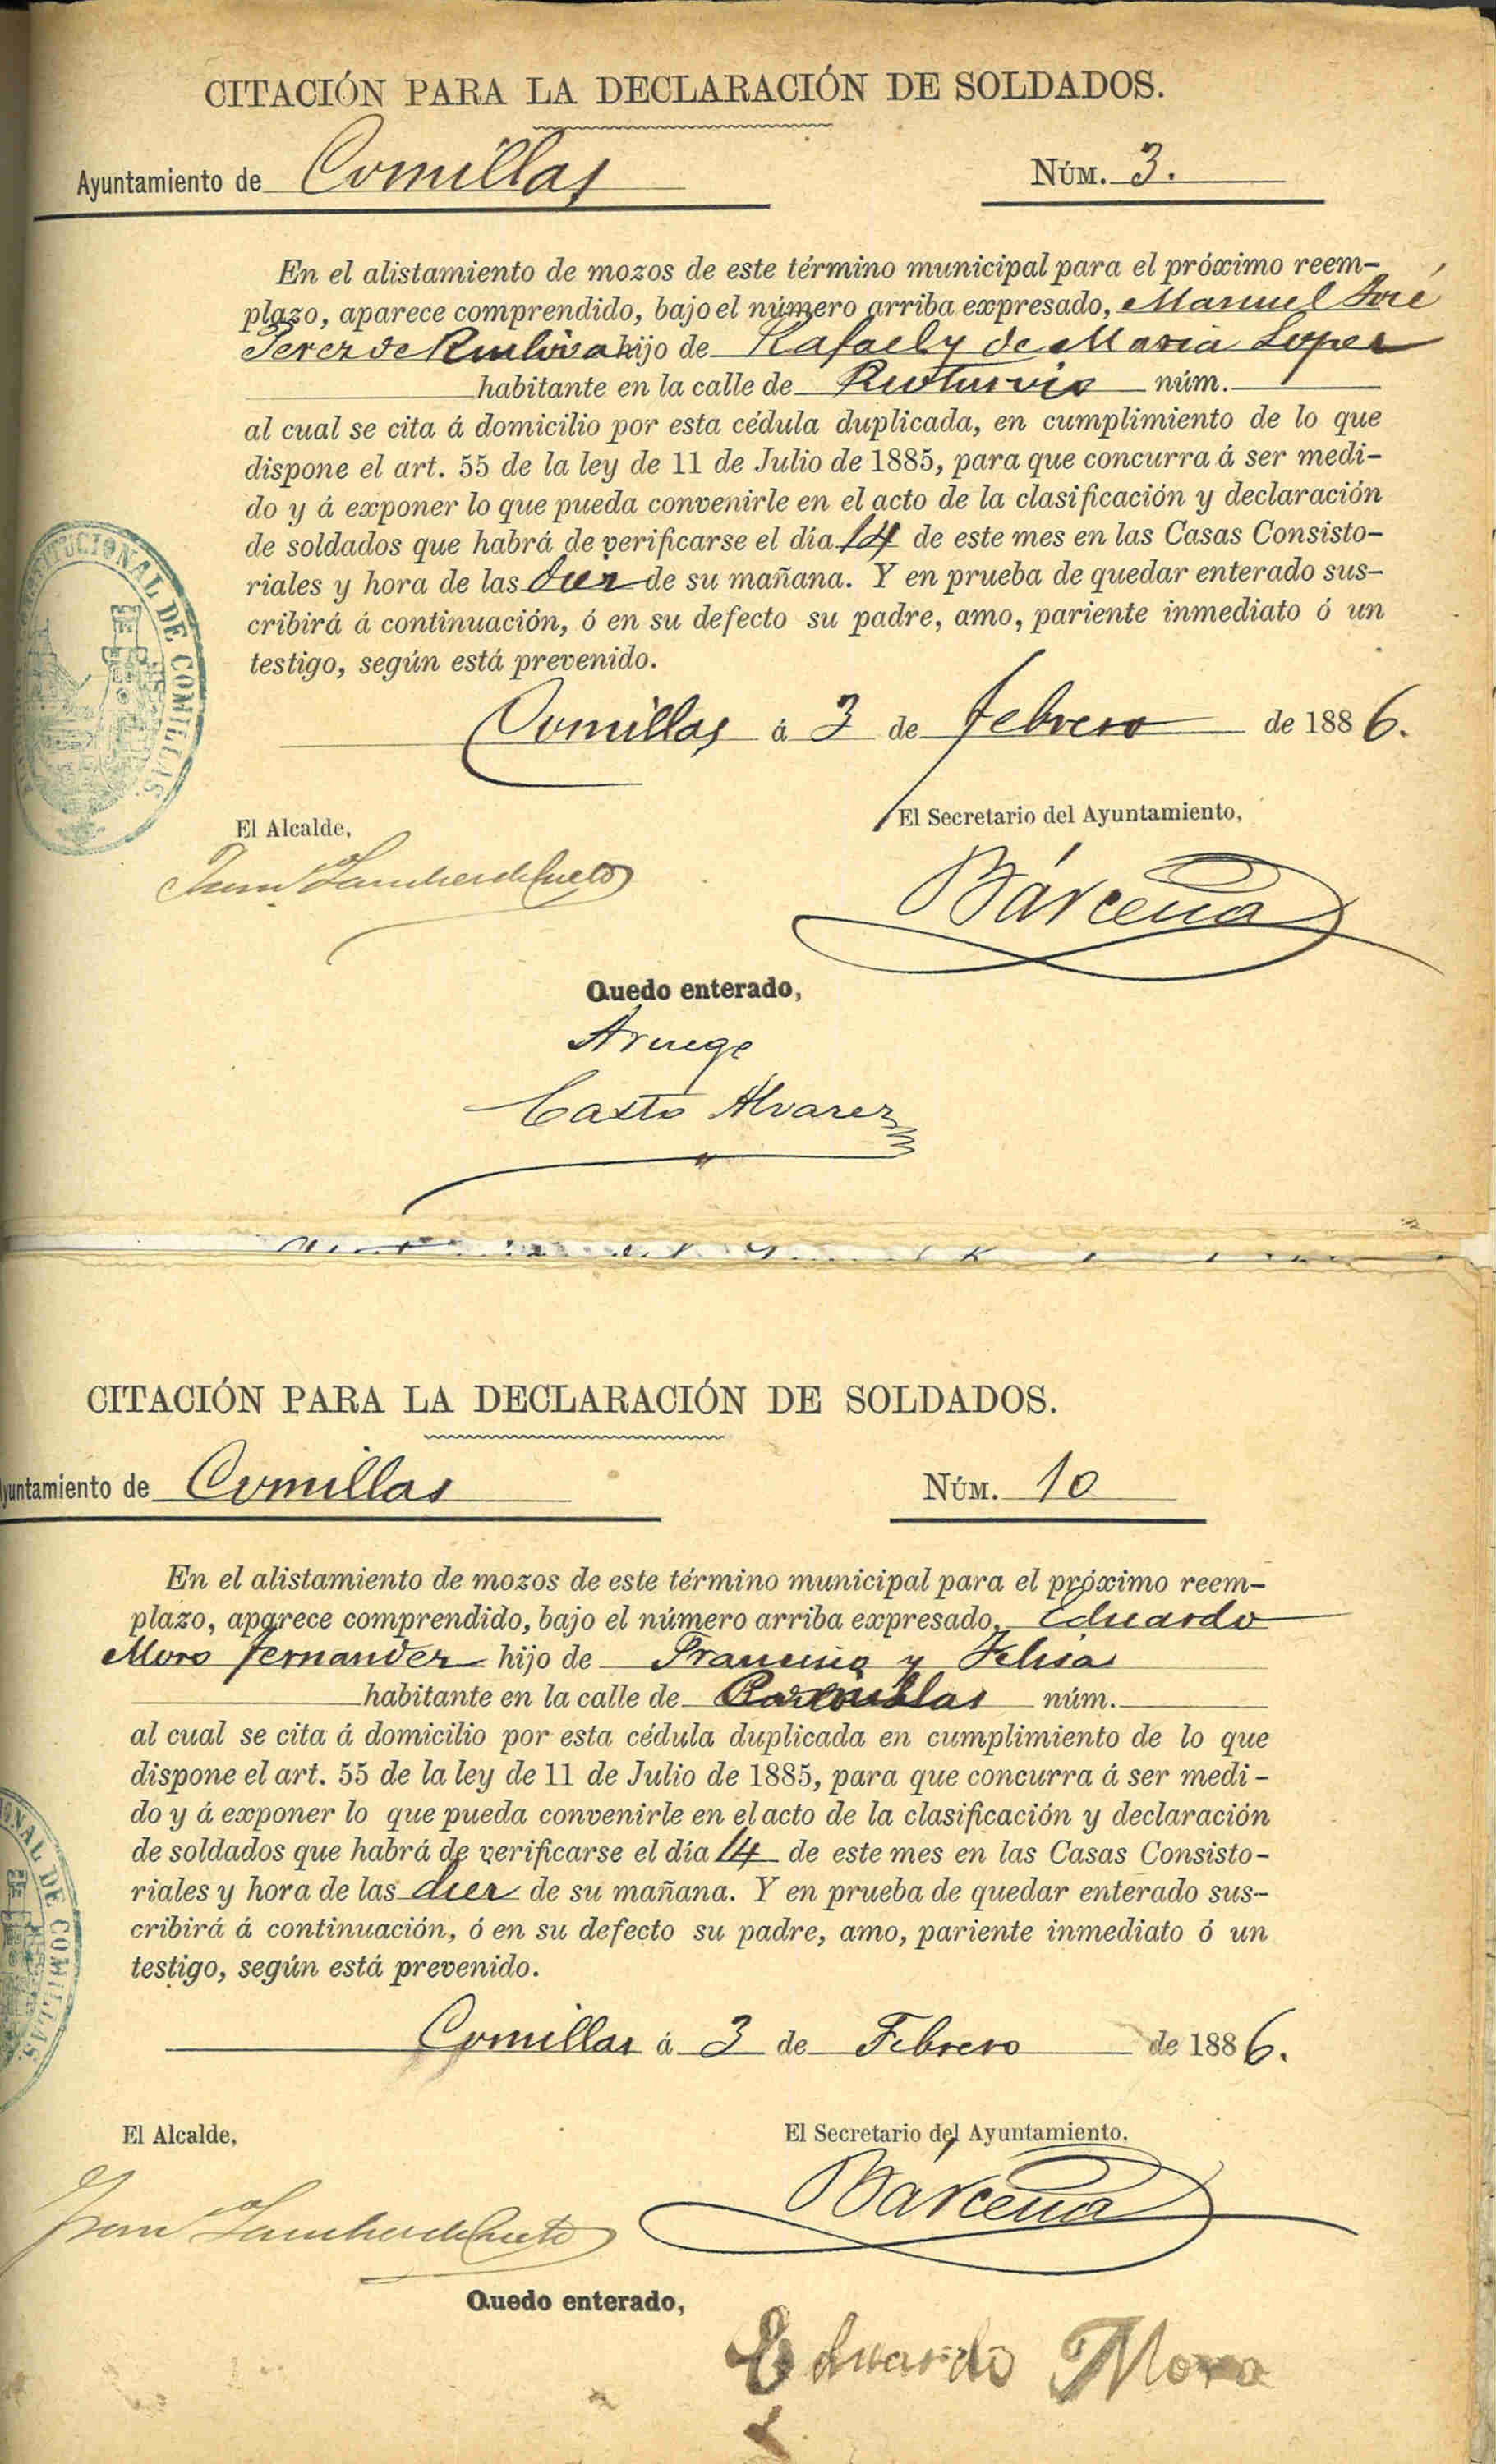 CITACIÓN PARA LA DECLARACIÓN DE SOLDADOS.
Ayuntamiento de Comillas NÚM. 3.
En el alistamiento de mozos de este término municipal para el próximo reem-
plazo, aparece comprendido, bajo el número arriba expresado, Manuel José
Perez de hijo de Rafael y de Maria Lopez
habitante en la calle de núm.
al cual se cita á domicilio por esta cédula duplicada, en cumplimiento de lo que
dispone el art. 55 de la ley de 11 de Julio de 1885, para que concurra á ser medi-
do y á exponer lo que pueda convenirle en el acto de la clasificación y declaración
de soldados que habrá de verificarse el día 14 de este mes en las Casas Consisto-
riales y hora de las diez de su mañana. Y en prueba de quedar enterado sus-
cribirá á continuación, ó en su defecto su padre, amo, pariente inmediato ó un
testigo, según está prevenido.
Comillas á 3 de febrero de 1886.
DE COMILLAS
El Alcalde, El Secretario del Ayuntamiento,
Juan Bárcena
Quedo enterado,
A ruego
Casto Alvarez
CITACIÓN PARA LA DECLARACIÓN DE SOLDADOS.
Ayuntamiento de Comillas NÚM. 10
En el alistamiento de mozos de este término municipal para el próximo reem-
plazo, aparece comprendido, bajo el número arriba expresado, Eduardo
Moro fernandez hijo de Francisco y Felisa
habitante en la calle de núm.
al cual se cita á domicilio por esta cédula duplicada en cumplimiento de lo que
dispone el art. 55 de la ley de 11 de Julio de 1885, para que concurra á ser medi-
do y á exponer lo que pueda convenirle en el acto de la clasificación y declaración
de soldados que habrá de verificarse el día 14 de este mes en las Casas Consisto-
riales y hora de las diez de su mañana. Y en prueba de quedar enterado sus-
cribirá á continuación, ó en su defecto su padre, amo, pariente inmediato ó un
testigo, según está prevenido.
Comillas á 3 de Febrero de 1886.
DE COMILLAS
El Alcalde, El Secretario del Ayuntamiento,
Juan Bárcena
Quedo enterado,
Eduardo Moro